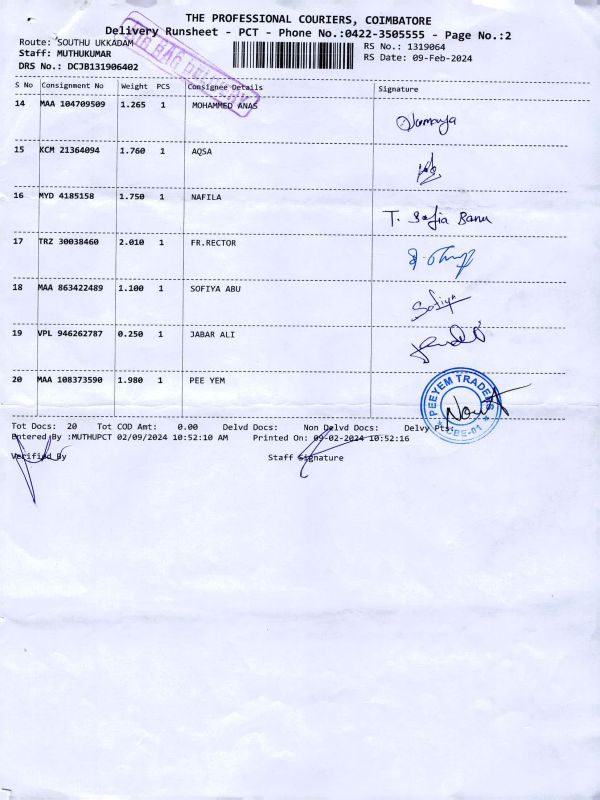 THE PROFESSIONAL COURIERS, COIMBATORE
Delivery Runsheet - PCT - Phone No.:0422-3505555 - Page No.:2
Route: SOUTHU UKKADAM
RS No.: 1319064
Staff: MUTHUKUMAR
RS Date: 09-Feb-2024
DRS No.: DCJB131906402
S No Consignment No Weight PCS Consignee Details Signature
14 MAA 104709509 1.265 1 MOHAMMED ANAS
15 KCM 21364094 1.760 1 AQSA
16 MYD 4185158 1.750 1 NAFILA T. Sofia Banu
17 TRZ 30038460 2.010 1 FR.RECTOR
18 MAA 863422489 1.100 1 SOFIYA ABU Sofiya
19 VPL 946262787 0.250 1 JABAR ALI
20 MAA 108373590 1.980 1 PEE YEM
PEEYEM TRADERS
CBE-01
Tot Docs: 20 Tot COD Amt: 0.00 Delvd Docs: Non Delvd Docs: Delvy Pts:
Entered By :MUTHUPCT 02/09/2024 10:52:10 AM Printed On: 09-02-2024 10:52:16
Verified By Staff Signature